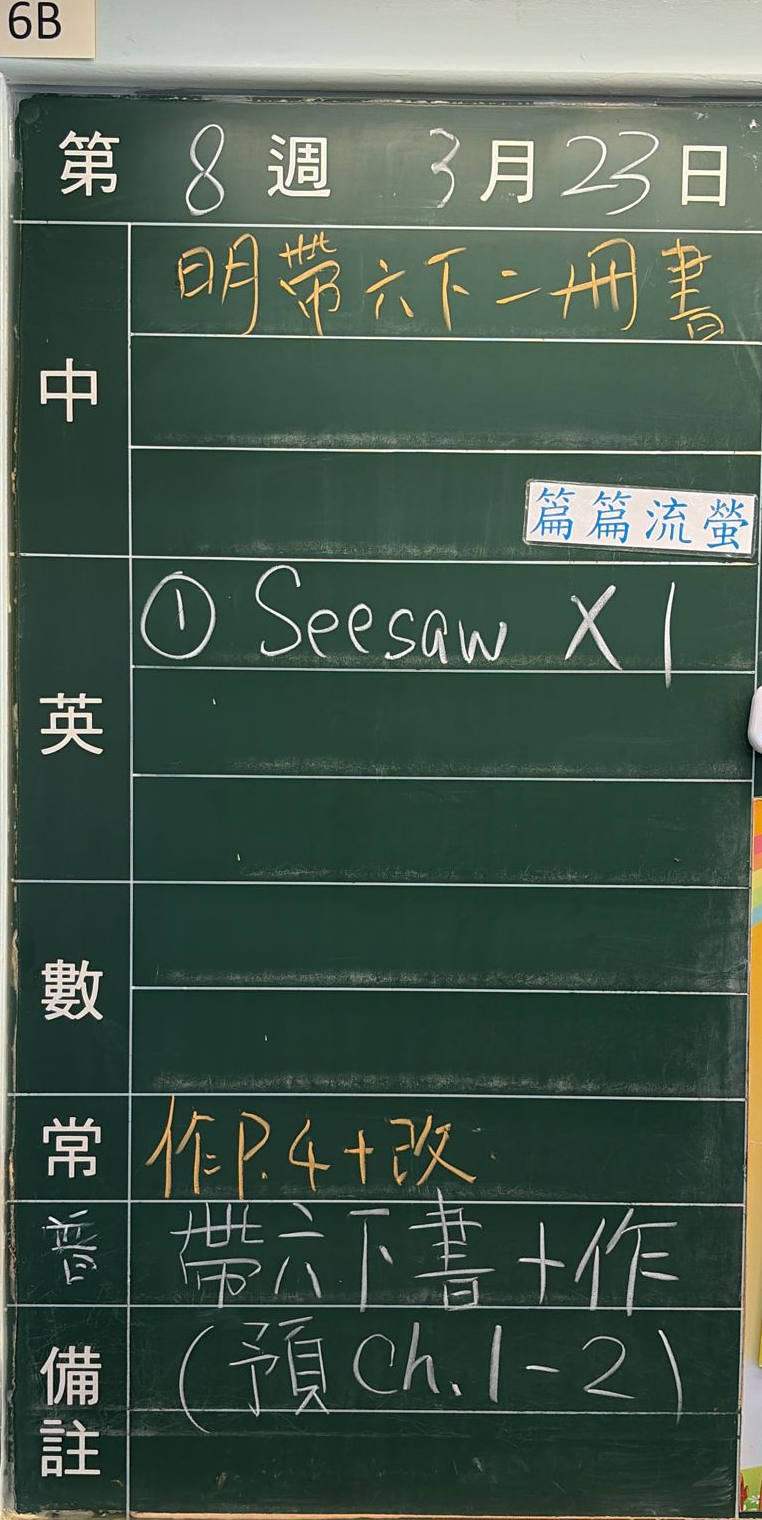 6B
第 8 週 3月23日
中
明帶六下二冊書
篇篇流螢
英
① Seesaw X 1
數
常
作P.4+改
普
帶六下書+作
備註
(預Ch.1-2)